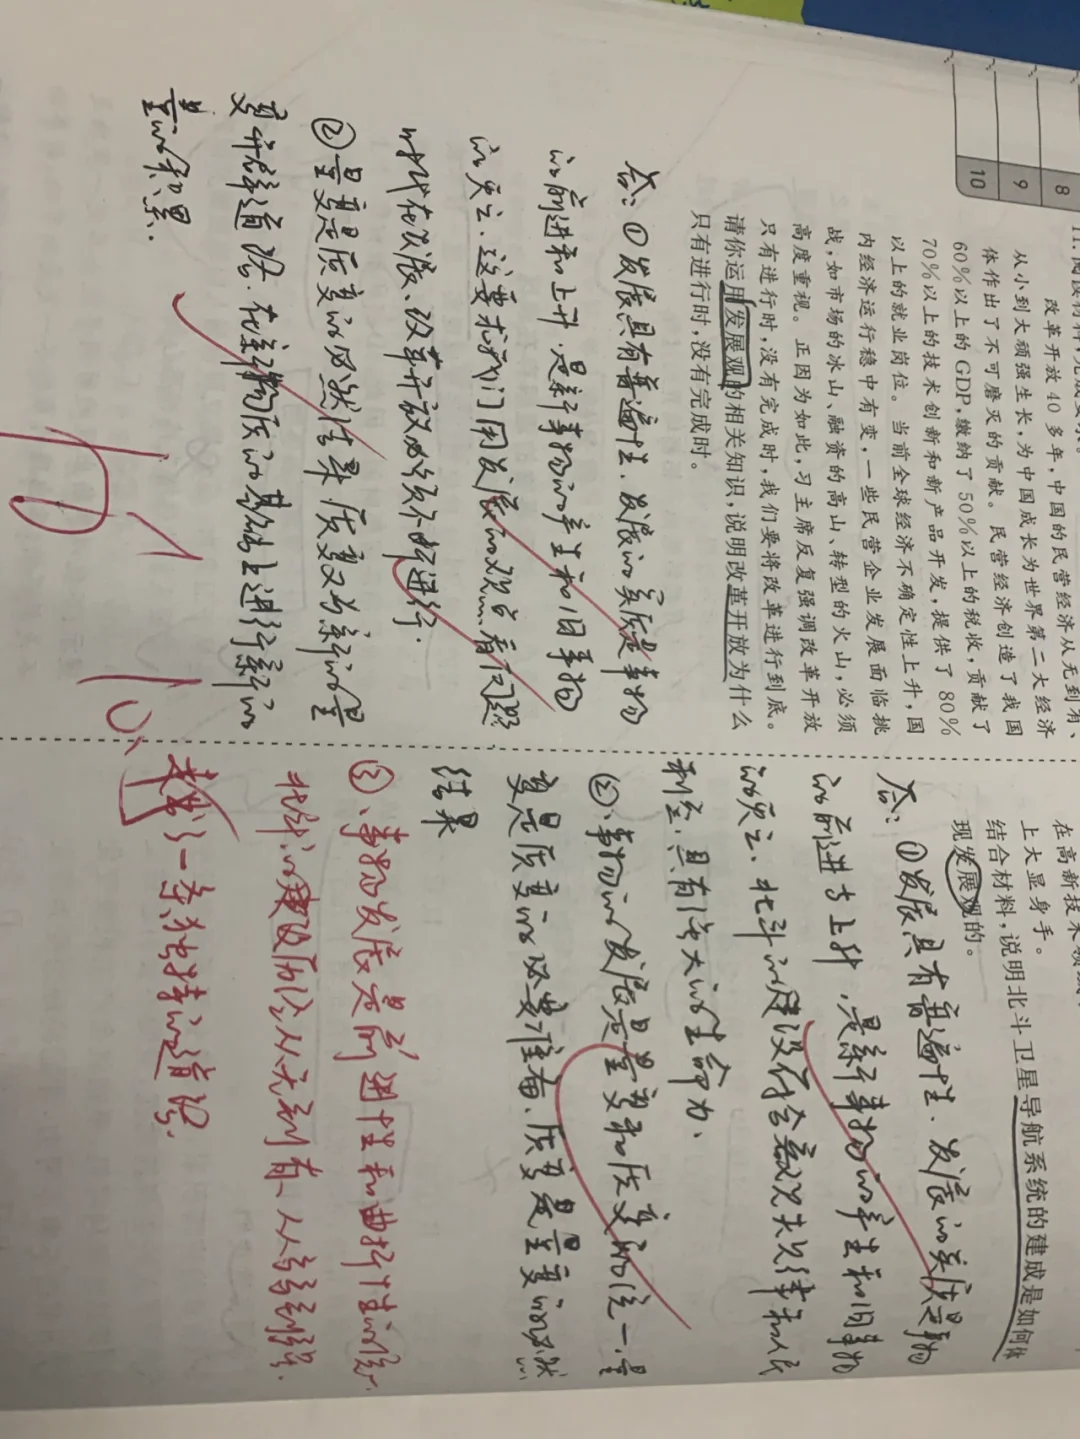 8
9
10
改革开放40多年,中国的民营经济从无到有、
从小到大顽强生长,为中国成长为世界第二大经济
体作出了不可磨灭的贡献。民营经济创造了我国
60%以上的GDP,缴纳了50%以上的税收,贡献了
70%以上的技术创新和新产品开发,提供了80%
以上的就业岗位。当前全球经济不确定性上升,国
内经济运行稳中有变,一些民营企业发展面临挑
战,如市场的冰山、融资的高山、转型的火山,必须
高度重视。正因为如此,习主席反复强调改革开放
只有进行时,没有完成时,我们要将改革进行到底。
请你运用发展观的相关知识,说明改革开放为什么
只有进行时,没有完成时。
答:①发展具有普遍性.发展的实质是事物
的前进和上升.是新事物的产生和旧事物
的灭亡.这要求我们用发展的观点看问题
时代在发展、改革开放必须不断进行.
②量变是质变的必然结果 质变又为新的量
变开辟道路.在新的质的基础上进行新的
量的积累.
上大显身手。
结合材料,说明北斗卫星导航系统的建成是如何体
现发展观的。
答:①发展具有普遍性.发展的实质是事物
的前进与上升,是新事物的产生和旧事物
的灭亡.北斗的建设符合客观规律和人民
利益.具有强大的生命力、
②、事物的发展是量变和质变的统一.量
变是质变的必要准备.质变是量变的必然
结果
③、事物发展是前进性和曲折性的统一.
北斗的建设历经从无到有、从弱到强.
走出了一条独特的道路.
10